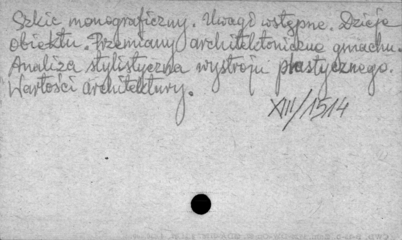 Szkic monograficzny. Uwagi wstępne. Dzieje
obiektu. Przemiany architektoniczne gmachu.
Analiza stylistyczna wystroju plastycznego.
Wartości architektury.
XIII/1514